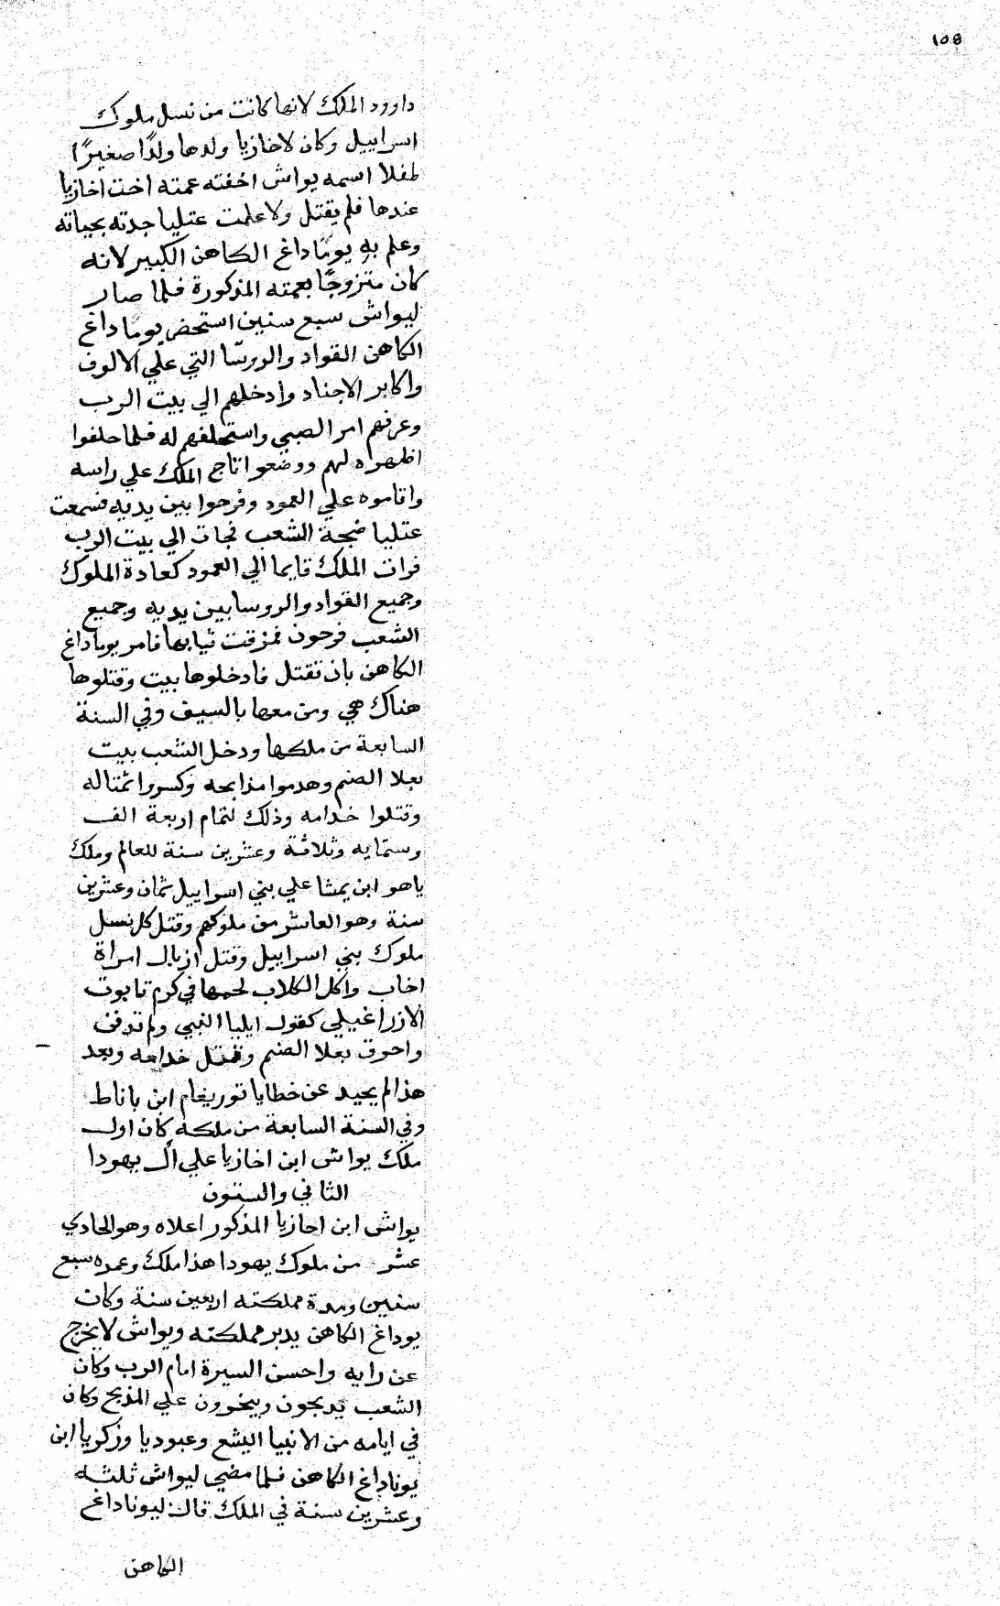 ١٥٥
داوود الملك لانها كانت من نسل ملوك
اسراييل وكان لاخازيا ولدها ولدًا صغيرًا
طفلا اسمه يواش اخفته عمته اخت اخازيا
عندها فلم يقتل ولا علمت عتليا جدته بحياته
وعلم به يوناداغ الكاهن الكبير لانه
كان متزوجًا بعمته المذكورة فلما صار
ليواش سبع سنين استحضر يوناداغ
الكاهن القواد والروسا التي علي الالوف
واكابر الاجناد وادخلهم الي بيت الرب
وعرفهم امر الصبي واستحلفهم له فلما حلفوا
اظهره لهم ووضعوا تاج الملك علي راسه
واقاموه علي العمود وفرحوا بين يديه فسمعت
عتليا ضجة الشعب فجات الي بيت الرب
فرات الملك قايما الي العمود كعادة الملوك
وجميع القواد والروسا بين يديه وجميع
الشعب فرحون فمزقت ثيابها فامر يوناداغ
الكاهن بان تقتل فادخلوها بيت وقتلوها
هناك هي ومن معها بالسيف وفي السنة
السابعة من ملكها ودخل الشعب بيت
بعلا الصنم وهدموا مذابحه وكسروا تمثاله
وقتلوا خدامه وذلك لتمام اربعة الف
وستمايه وثلاثة وعشرين سنة للعالم وملك
ياهو ابن يمشا علي بني اسراييل ثمان وعشرين
سنة وهو العاشر من ملوكهم وقتل كل نسل
ملوك بني اسراييل وقتل ازبال امراة
اخاب واكل الكلاب لحمها في كرم تابوت
الازراغيلي كقول ايليا النبي ولم تدفن
واحرق بعلا الصنم وقتل خدامه وبعد
هذا لم يحيد عن خطايا توريغام ابن باناط
وفي السنة السابعة من ملكه كان اول
ملك يواش ابن اخازيا علي ال يهودا
الثاني والستون
يواش ابن احازيا المذكور اعلاه وهو الحادي
عشر من ملوك يهودا هذا ملك وعمره سبع
سنين ومدة مملكته اربعين سنة وكان
يوداغ الكاهن يدبر مملكته ويواش لا يخرج
عن رايه واحسن السيرة امام الرب وكان
الشعب يدبحون ويبخرون علي المذبح وكان
في ايامه من الانبيا اليشع وعبوديا وزكريا ابن
يوناداغ الكاهن فلما مضي ليواش ثلثه
وعشرين سنة في الملك قال ليوناداغ
الكاهن